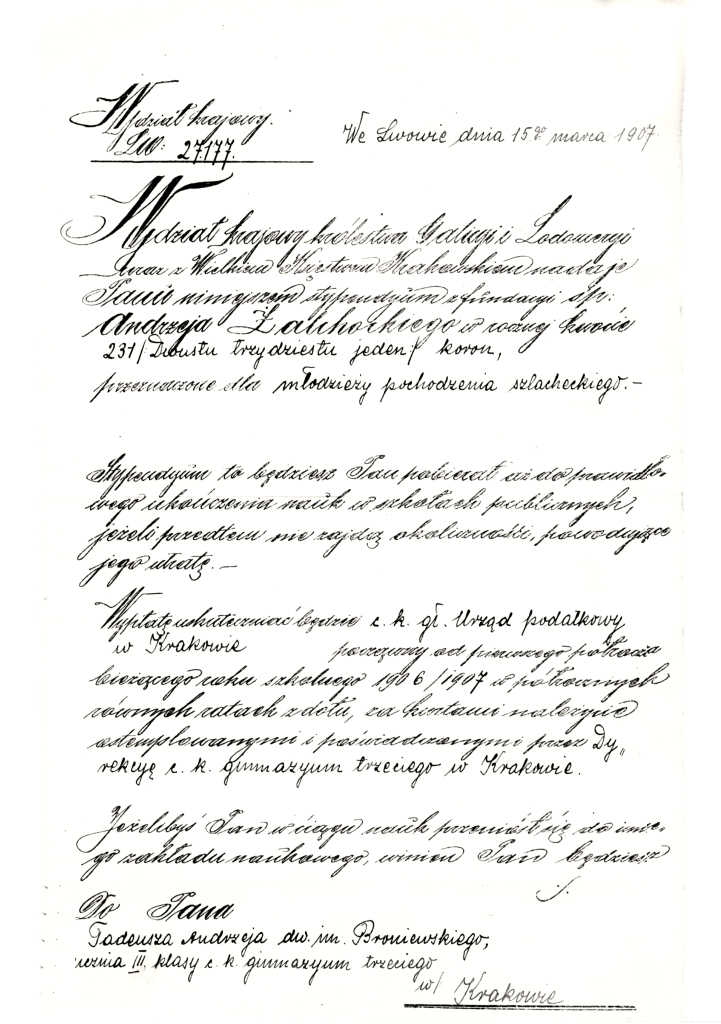 Wydział krajowy.
We Lwowie dnia 15.go marca 1907.
Lw: 27.177.
Wydział krajowy królestwa Galicyi i Lodomeryi
wraz z Wielkiem Księstwem Krakowskiem nadaje
Panu niniejszem stypendyum z fundacyi śp:
Andrzeja Zalchockiego w rocznej kwocie
231/ Dwustu trzydziestu jeden/ koron,
przeznaczone dla młodzieży pochodzenia szlacheckiego.—
Stypendyum to będziesz Pan pobierał aż do prawidło-
wego ukończenia nauk w szkołach publicznych,
jeżeli przedtem nie zajdą okoliczności, powodujące
jego utratę.—
Wypłatę uskuteczniać będzie c. k. gł. Urząd podatkowy
w Krakowie począwszy od pierwszego półrocza
bieżącego roku szkolnego 1906/1907 w półrocznych
równych ratach z dołu, za kwitami należycie
ostemplowanymi i poświadczonymi przez Dy„
rekcyę c. k. gimnazyum trzeciego w Krakowie.
Jeżelibyś Pan w ciągu nauk przeniósł się do inne-
go zakładu naukowego, winien Pan będziesz
./.
Do Pana
Tadeusza Andrzeja dw. im. Broniewskiego,
ucznia III. klasy c. k. gimnazyum trzeciego
w/ Krakowie